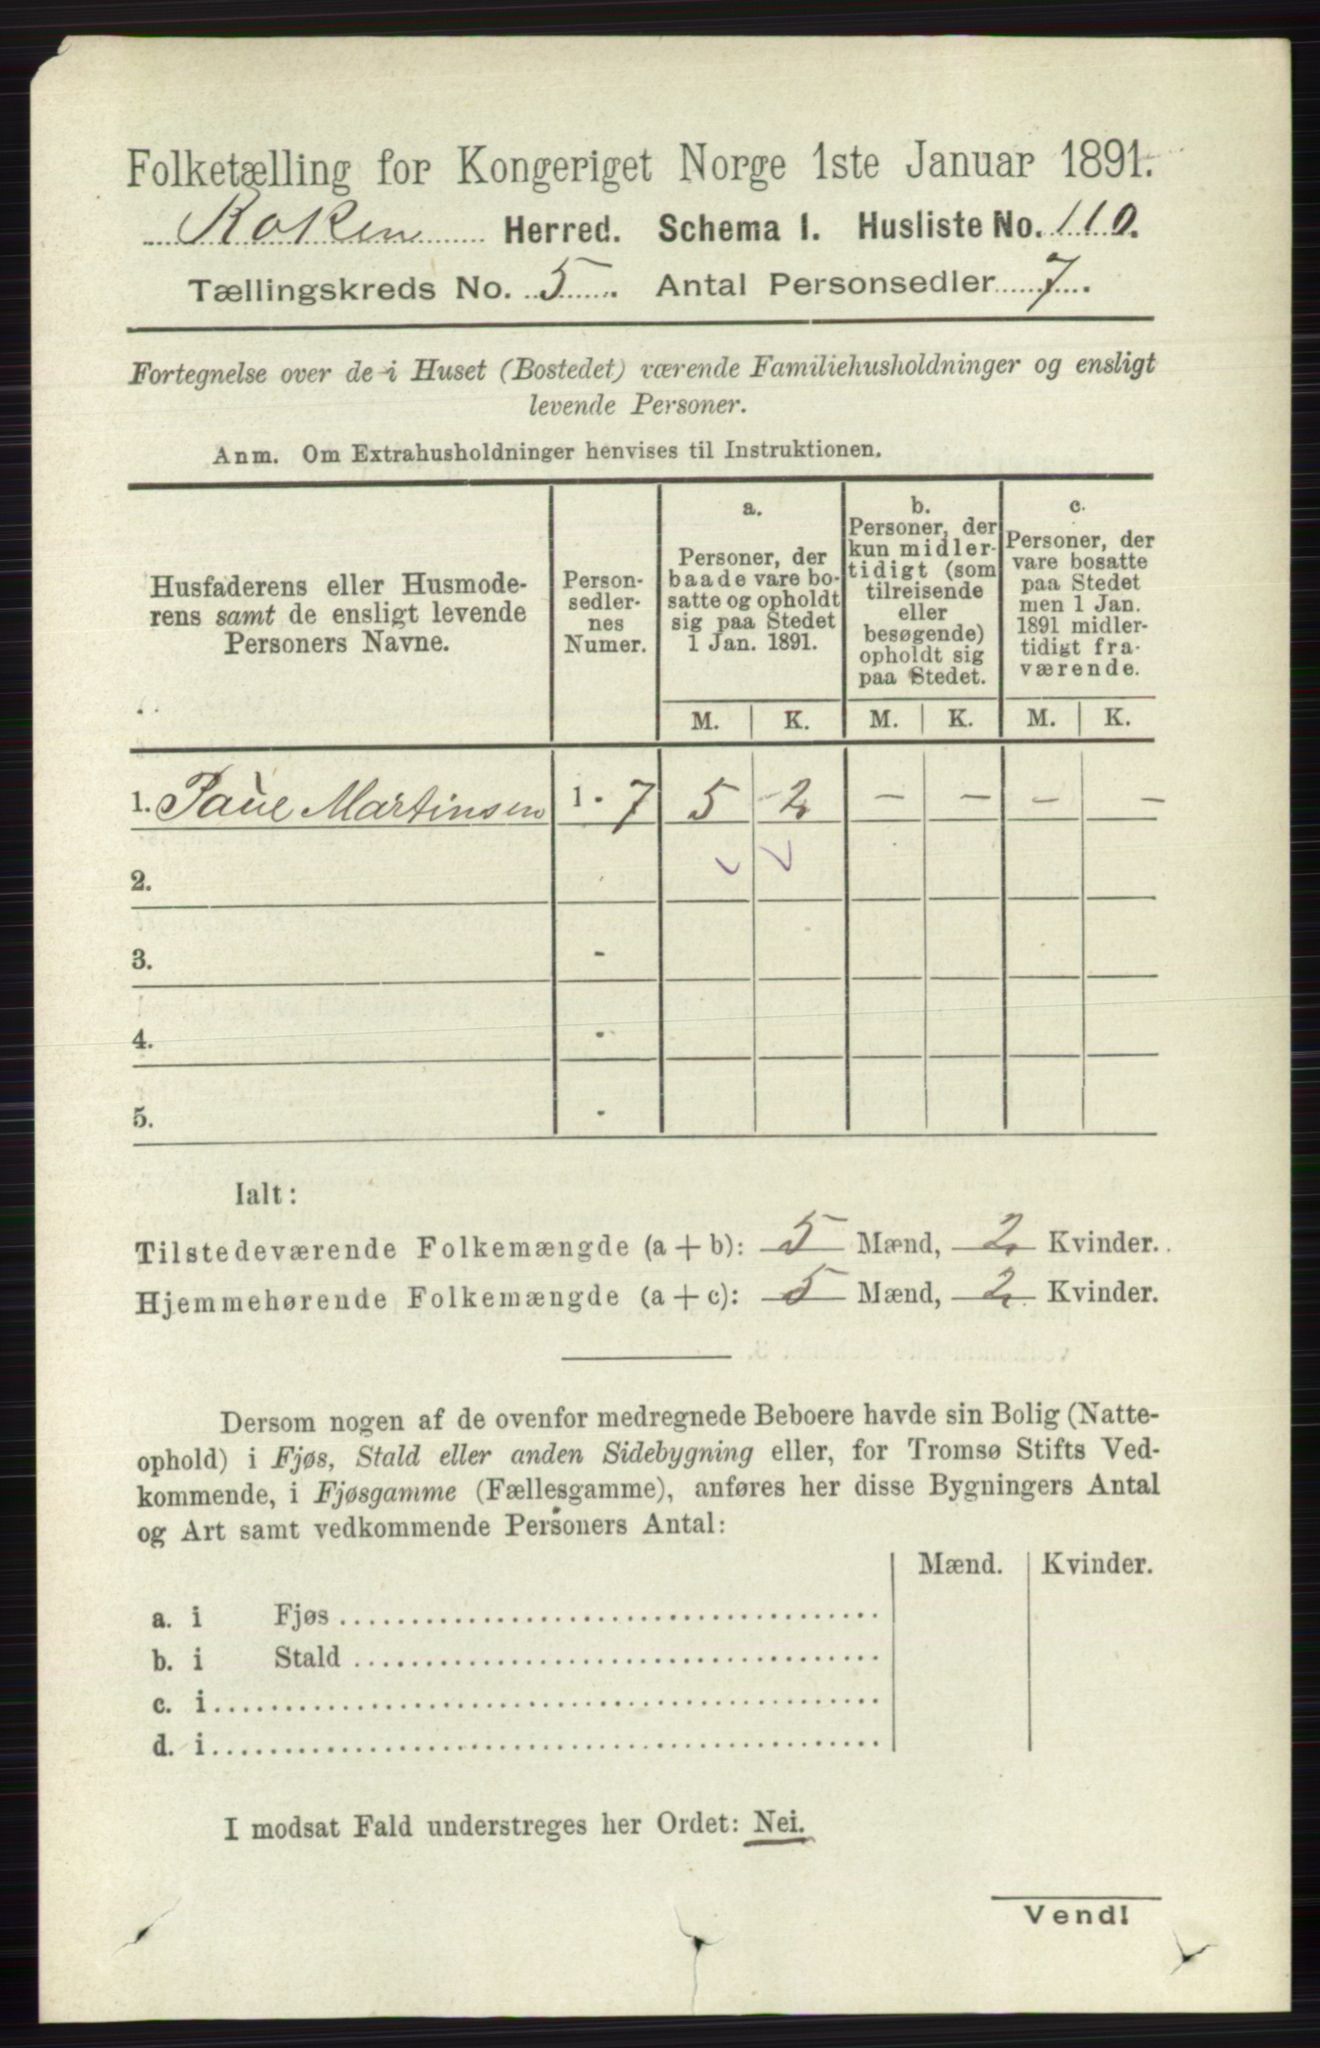 Folketælling for Kongeriget Norge 1ste Januar 1891.
Røken Herred. Schema 1. Husliste No. 110.
Tællingskreds No. 5. Antal Personsedler 7.
Fortegnelse over de i Huset (Bostedet) værende Familiehusholdninger og ensligt
levende Personer.
Anm. Om Extrahusholdninger henvises til Instruktionen.
Husfaderens eller Husmode-
rens samt de ensligt levende
Personers Navne.
Person-
sedler-
nes
Numer.
a.
Personer, der
baade vare bo-
satte og opholdt
sig paa Stedet
1 Jan. 1891.
b.
Personer, der
kun midler-
tidigt (som
tilreisende
eller
besøgende)
opholdt sig
paa Stedet.
c.
Personer, der
vare bosatte
paa Stedet
men 1 Jan.
1891 midler-
tidigt fra-
værende.
M. K. M. K. M. K.
1. Paul Martinsen 1 - 7 5 2 - - - -
2.
3. -
4. -
5. -
Ialt:
Tilstedeværende Folkemængde (a + b): 5 Mænd, 2 Kvinder.
Hjemmehørende Folkemængde (a + c): 5 Mænd, 2 Kvinder.
Dersom nogen af de ovenfor medregnede Beboere havde sin Bolig (Natte-
ophold) i Fjøs, Stald eller anden Sidebygning eller, for Tromsø Stifts Ved-
kommende, i Fjøsgamme (Fællesgamme), anføres her disse Bygningers Antal
og Art samt vedkommende Personers Antal:
Mænd. Kvinder.
a. i Fjøs
b. i Stald
c. i
d. i
I modsat Fald understreges her Ordet: Nei.
Vend!